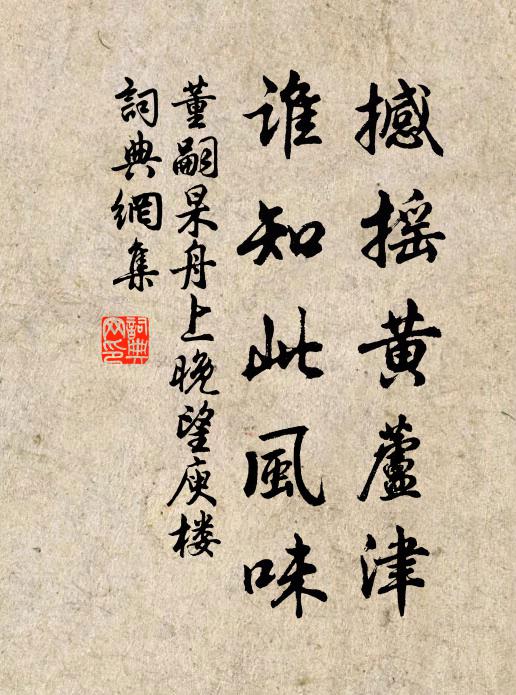 撼摇黄蘆津
谁知此風味
董嗣杲舟上晚望庾楼
詞典網集
詞典
网印